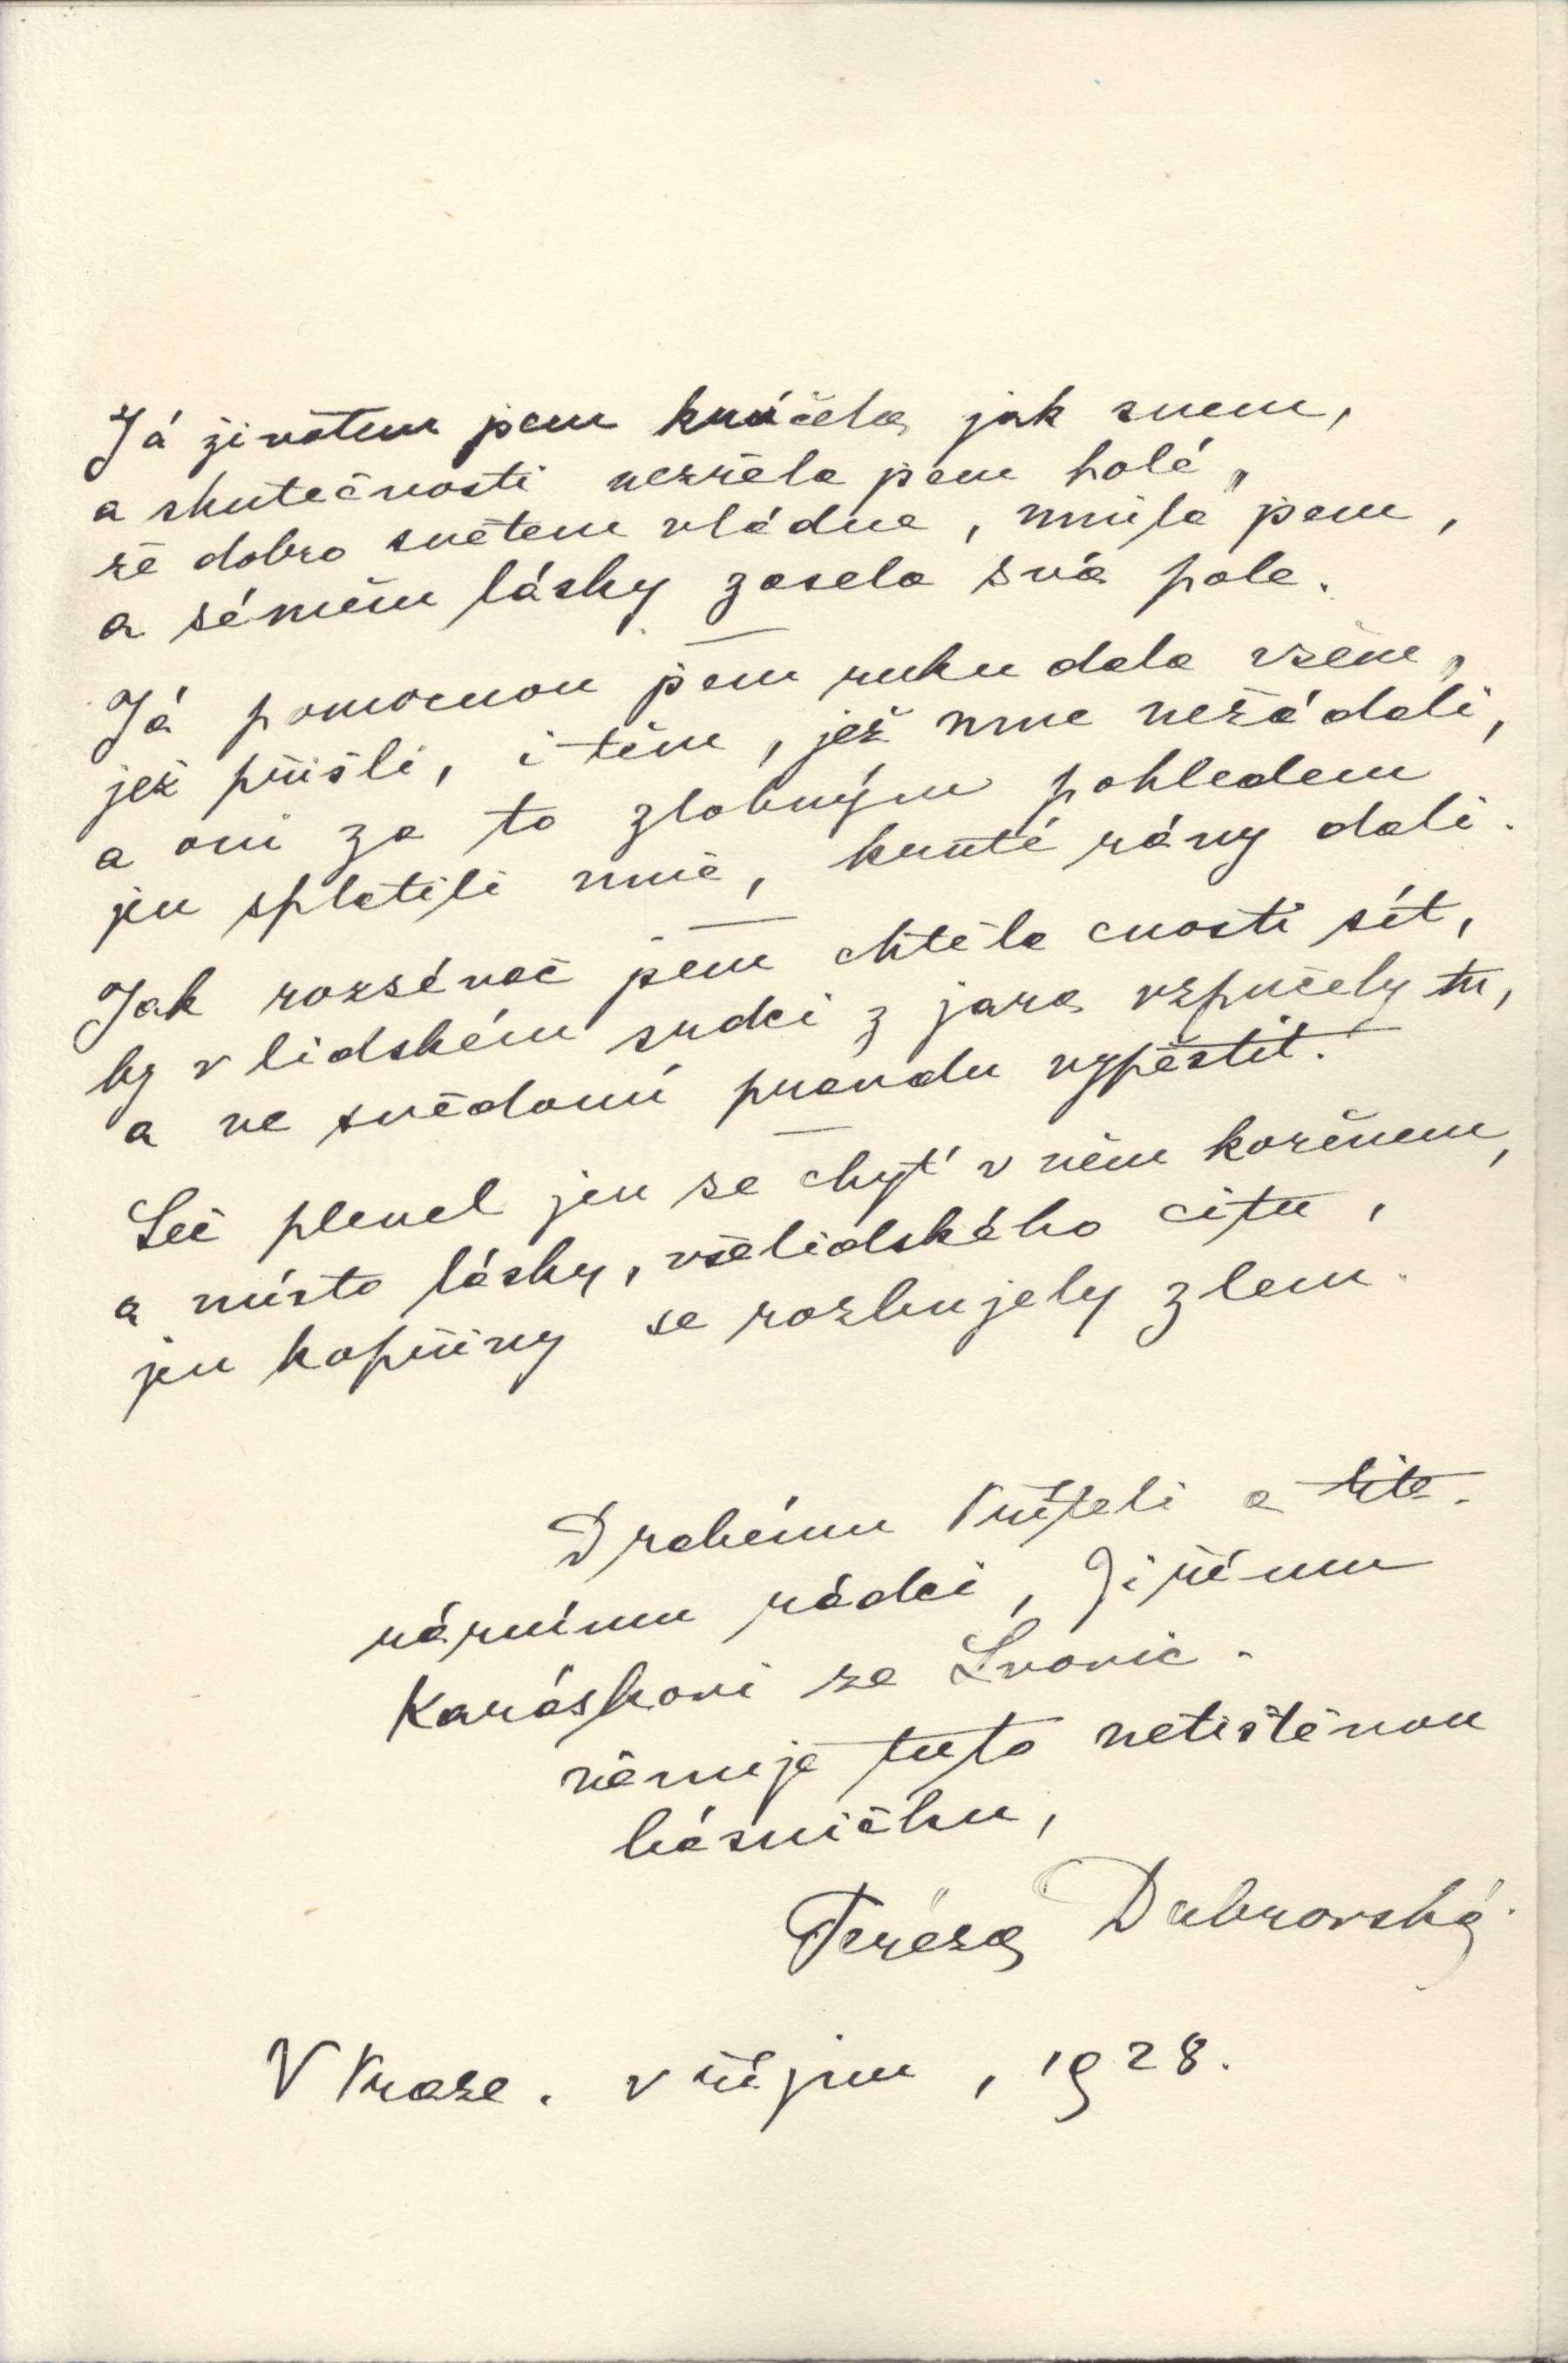 Já životem jsem kráčela jak snem,
a skutečnosti nezřela jsem holé,
že dobro světem vládne, mnila jsem,
a séměm lásky zasela svá pole.
Já pomocnou jsem ruku dala všem,
jež přišli, i těm, jež mne nežádali,
a oni za to zlobným pohledem
jen splatili mně, kruté rány dali.
Jak rozsévač jsem chtěla cnosti sít,
by v lidském srdci z jara vzpučely tu,
a ve svědomí pravdu vypěstit.
Leč plevel jen se chyt' v něm kořenem,
a místo lásky, všelidského citu,
jen kopřivy se rozbujely zlem.
Drahému Příteli a lite-
rárnímu rádci, Jiřímu
Karáskovi ze Lvovic.
věnuje tuto netištěnou
básničku,
Teréza Dubrovská.
V Praze. v říjnu, 1928.